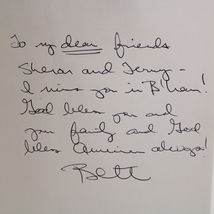 To my dear friends
Sharon and Terry -
I miss you in B'ham!
God bless you and
your family and God
bless America always!
Bett